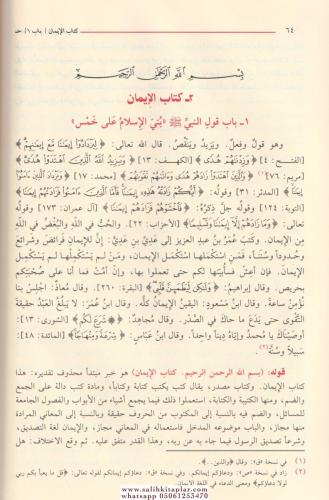 ٦٤
كتاب الإيمان / باب ١/
بِسْمِ اللَّهِ الرَّحْمَنِ الرَّحِيمِ
٢ـ كتاب الإيمان
١ ـ باب قولِ النبيِّ ﷺ «بُنِيَ الإسلامُ عَلى خَمْس»
وهو قولٌ وفعلٌ. ويزيدُ وينقُصُ. قال الله تعالى: ﴿لِيَزْدَادُوا إِيمَانًا مَعَ إِيمَانِهِمْ﴾
[الفتح: ٤] ﴿وَزِدْنَاهُمْ هُدًى﴾ [الكهف: ١٣] ﴿وَيَزِيدُ اللَّهُ الَّذِينَ اهْتَدَوْا هُدًى﴾
[مريم: ٧٦](١) ﴿وَالَّذِينَ اهْتَدَوْا زَادَهُمْ هُدًى وَآتَاهُمْ تَقْوَاهُمْ﴾ [محمد: ١٧] ﴿وَيَزْدَادَ الَّذِينَ آمَنُوا
إِيمَانًا﴾ [المدثر: ٣١] وقولُه: ﴿أَيُّكُمْ زَادَتْهُ هَذِهِ إِيمَانًا فَأَمَّا الَّذِينَ آمَنُوا فَزَادَتْهُمْ إِيمَانًا﴾
[التوبة: ١٢٤] وقولُه جلَّ ذِكرُه: ﴿فَاخْشَوْهُمْ فَزَادَهُمْ إِيمَانًا﴾ [آل عمران: ١٧٣] وقولُه
تعالى: ﴿وَمَا زَادَهُمْ إِلَّا إِيمَانًا وَتَسْلِيمًا﴾ [الأحزاب: ٢٢]. والحبُّ في اللهِ والبُغْضُ في اللهِ
من الإيمان. وكتبَ عُمرُ بنُ عبدِ العزيز إلى عَدِيِّ بن عَدِيٍّ: إنَّ للإيمانِ فَرائضَ وشرائعَ
وحُدوداً وسُنَناً، فمَنِ استكملَها استكملَ الإيمان، ومَن لم يَستكمِلْها لم يستكمِلِ
الإيمان. فإن أعِشْ فسأُبَيِّنُها لكم حتى تعملوا بها، وإن أمُتْ فما أنا على صُحبَتِكم
بحَريص. وقال إبراهيمُ: ﴿وَلَكِنْ لِيَطْمَئِنَّ قَلْبِي﴾ [البقرة: ٢٦٠]. وقال مُعاذٌ: اجلِسْ بنا
نُؤمِنْ ساعةً. وقال ابنُ مسعودٍ: اليقينُ الإيمانُ كلُّه. وقال ابنُ عُمرَ: لا يبلُغُ العبدُ حقيقةَ
التقوى حتى يَدَعَ ما حاكَ في الصَّدر. وقال مُجاهدٌ: ﴿شَرَعَ لَكُمْ﴾ [الشورى: ١٣]:
أوصَيناكَ يا محمدُ وإيّاهُ ديناً واحداً. وقال ابنُ عبّاسٍ: ﴿شِرْعَةً وَمِنْهَاجًا﴾ [المائدة: ٤٨]:
سَبيلاً وسُنَّةً(٢).
قوله: (بسم الله الرحمن الرحيم. كتاب الإيمان) هو خبر مبتدأ محذوف تقديره: هذا
كتاب الإيمان. وكتاب مصدر، يقال كتب يكتب كتابة وكتاباً، ومادة كتب دالة على الجمع
والضم، ومنها الكتيبة والكتابة، استعملوا ذلك فيما يجمع أشياء من الأبواب والفصول الجامعة
للمسائل، والضم فيه بالنسبة إلى المكتوب من الحروف حقيقة وبالنسبة إلى المعاني المرادة
منها مجاز، والباب موضوعه المدخل فاستعماله في المعاني مجاز، والإيمان لغة التصديق،
وشرعاً تصديق الرسول فيما جاء به عن ربه، وهذا القدر متفق عليه. ثم وقع الاختلاف: هل
(١) في نسخة «ق»: وقال «والذين...».
(٢) زاد في نسخة «ص»: ودعاؤكم إيمانكم. وفي نسخة «ق»: دعاؤكم إيمانكم لقوله تعالى: ﴿قل ما يعبأ بكم ربي
لولا دعاؤكم﴾ ومعنى الدعاء في اللغة الإيمان.
www.salihkitaplar.com
whatsapp 05061253470